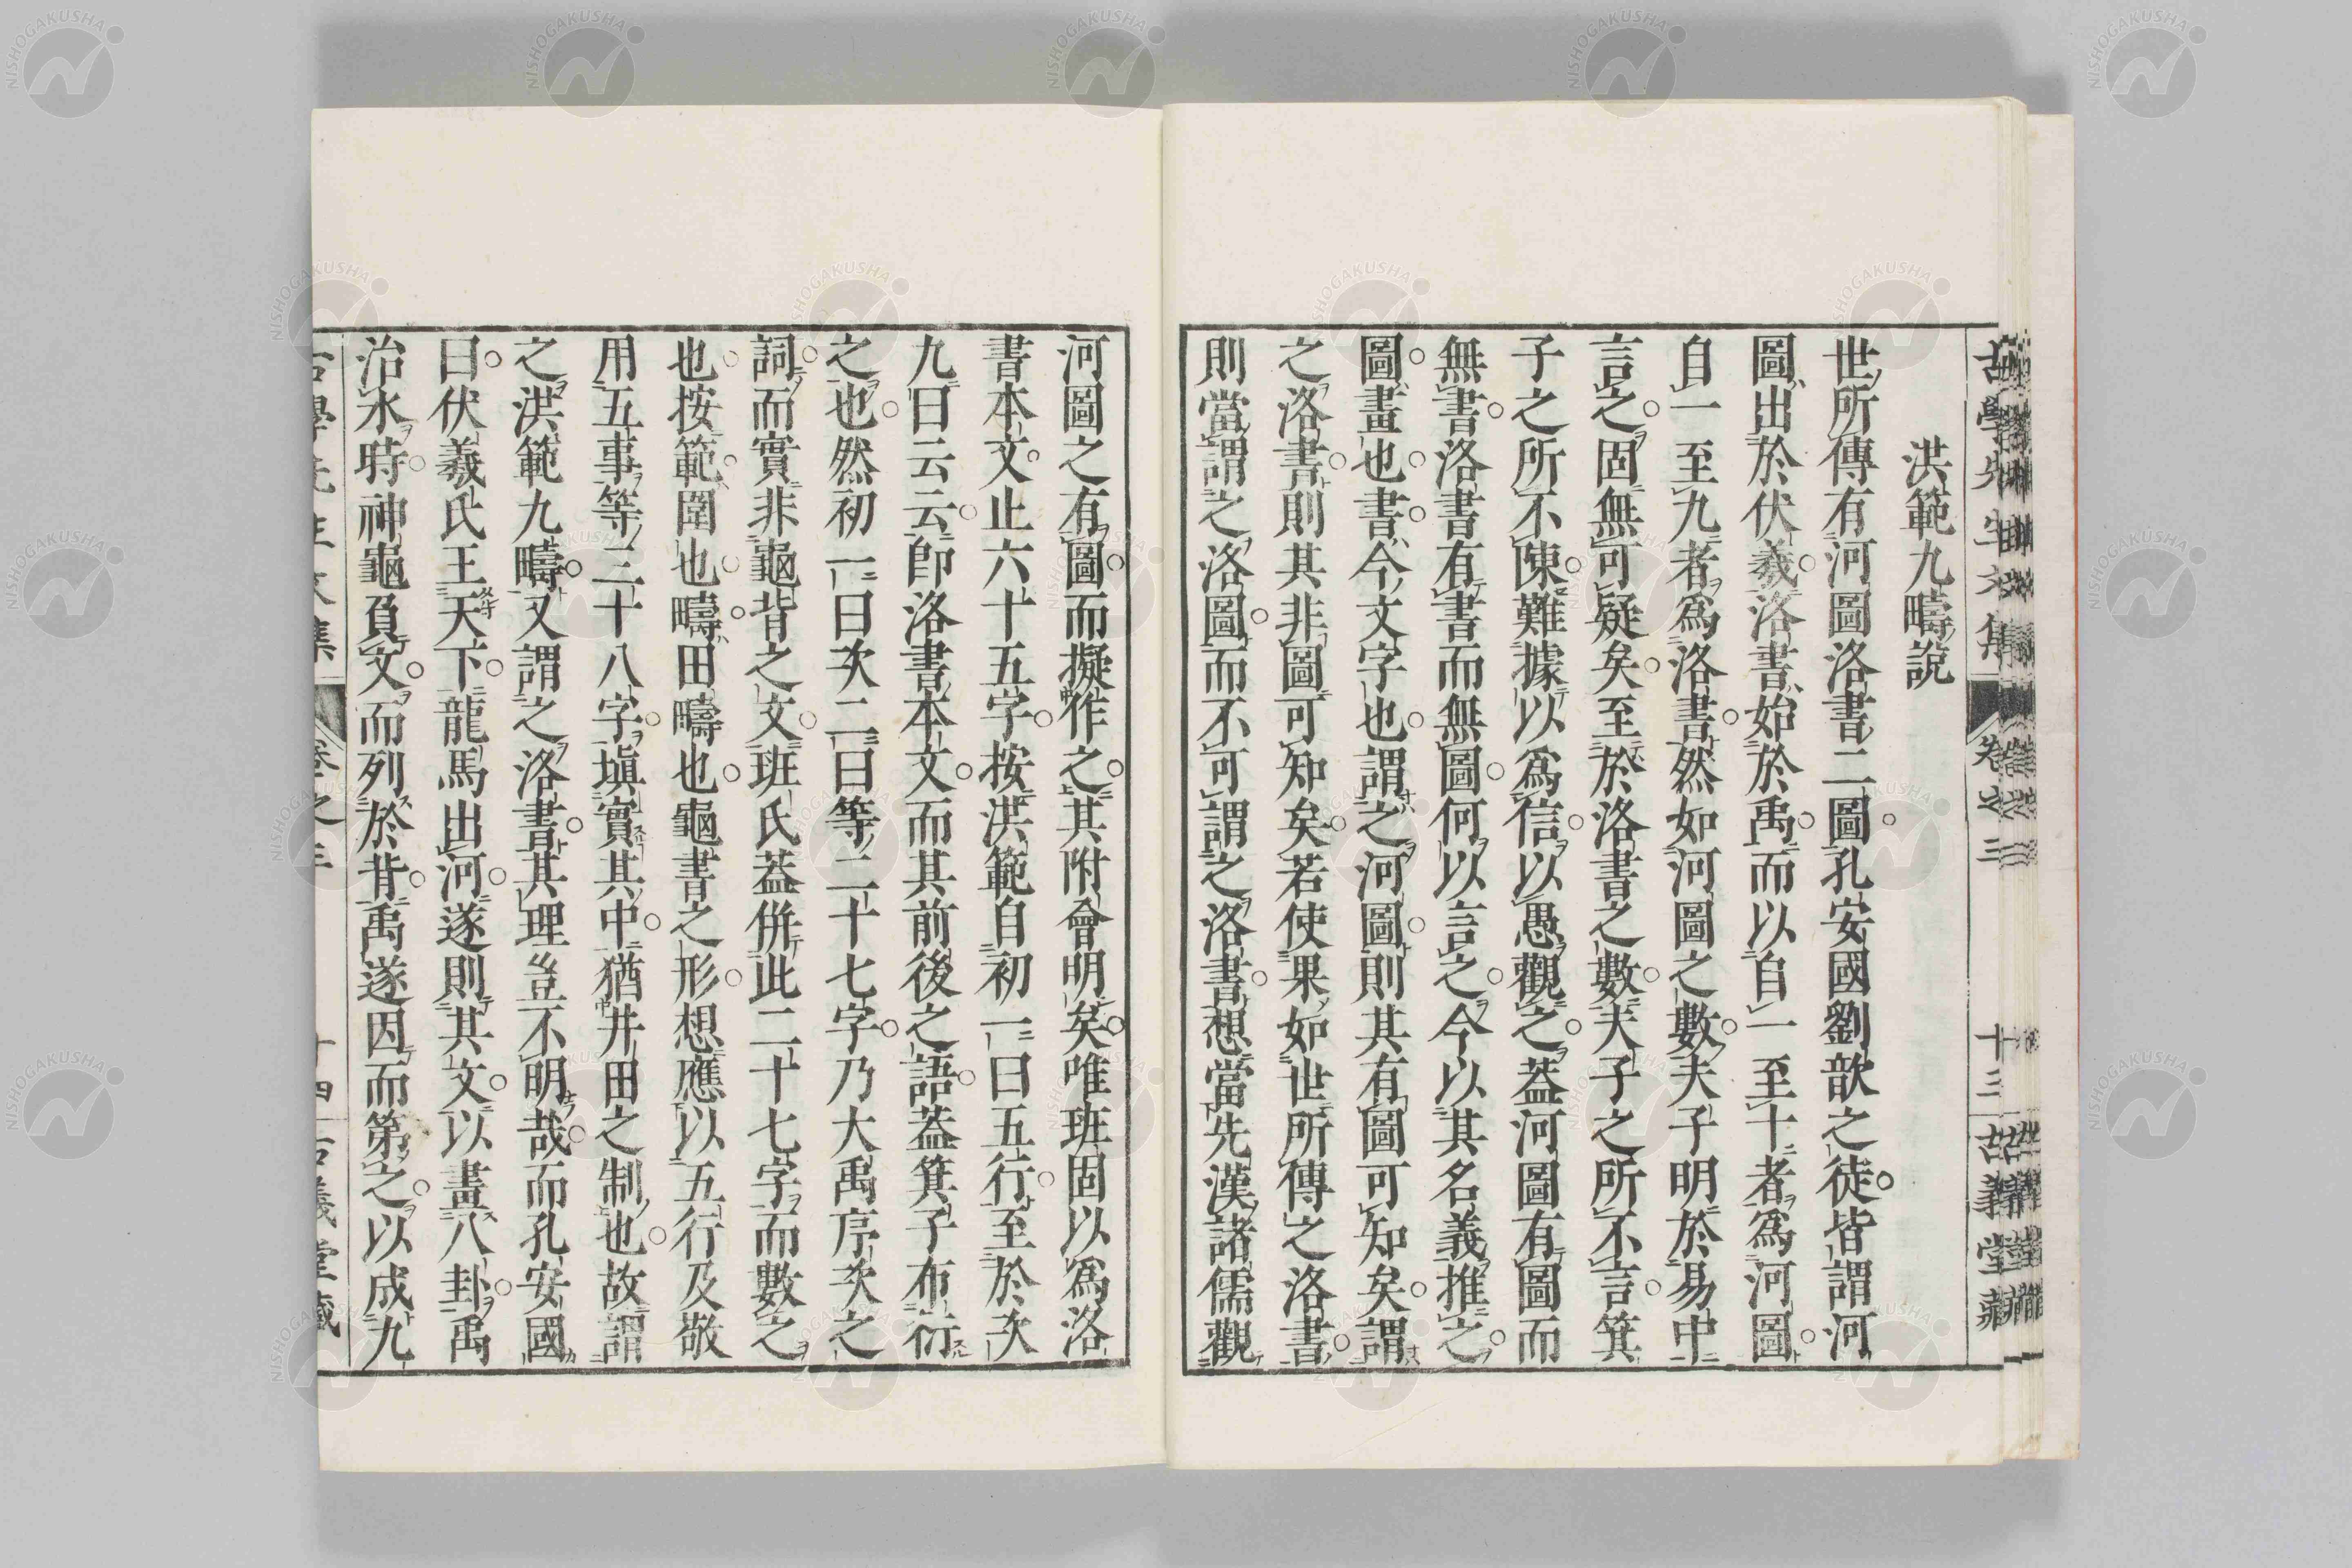 古學先生文集 卷之三 十三 古義堂藏
洪範九疇說
世所傳有河圖洛書二圖孔安國劉歆之徒皆謂河
圖出於伏羲洛書始於禹而以自一至十者爲河圖
自一至九者爲洛書然如河圖之數夫子明於易中
言之固無可疑矣至於洛書之數夫子之所不言箕
子之所不陳難據以爲信以愚觀之葢河圖有圖而
無書洛書有書而無圖何以言之今以其名義推之
圖畫也書今文字也謂之河圖則其有圖可知矣謂
之洛書則其非圖可知矣若使果如世所傳之洛書
則當謂之洛圖而不可謂之洛書想當先漢諸儒觀
河圖之有圖而擬作之其附會明矣唯班固以爲洛
書本文止六十五字按洪範自初一曰五行至於次
九曰云云卽洛書本文而其前後之語葢箕子布衍
之也然初一曰次二曰等二十七字乃大禹序次之
詞而實非龜背之文班氏葢併此二十七字而數之
也按範圍也疇田疇也龜書之形想應以五行及敬
用五事等三十八字塡實其中猶井田之制也故謂
之洪範九疇又謂之洛書其理豈不明哉而孔安國
曰伏羲氏王天下龍馬出河遂則其文以畫八卦禹
治水時神龜負文而列於背禹遂因而第之以成九
古學先生文集 卷之三 十四 古義堂藏
NISHOGAKUSHA